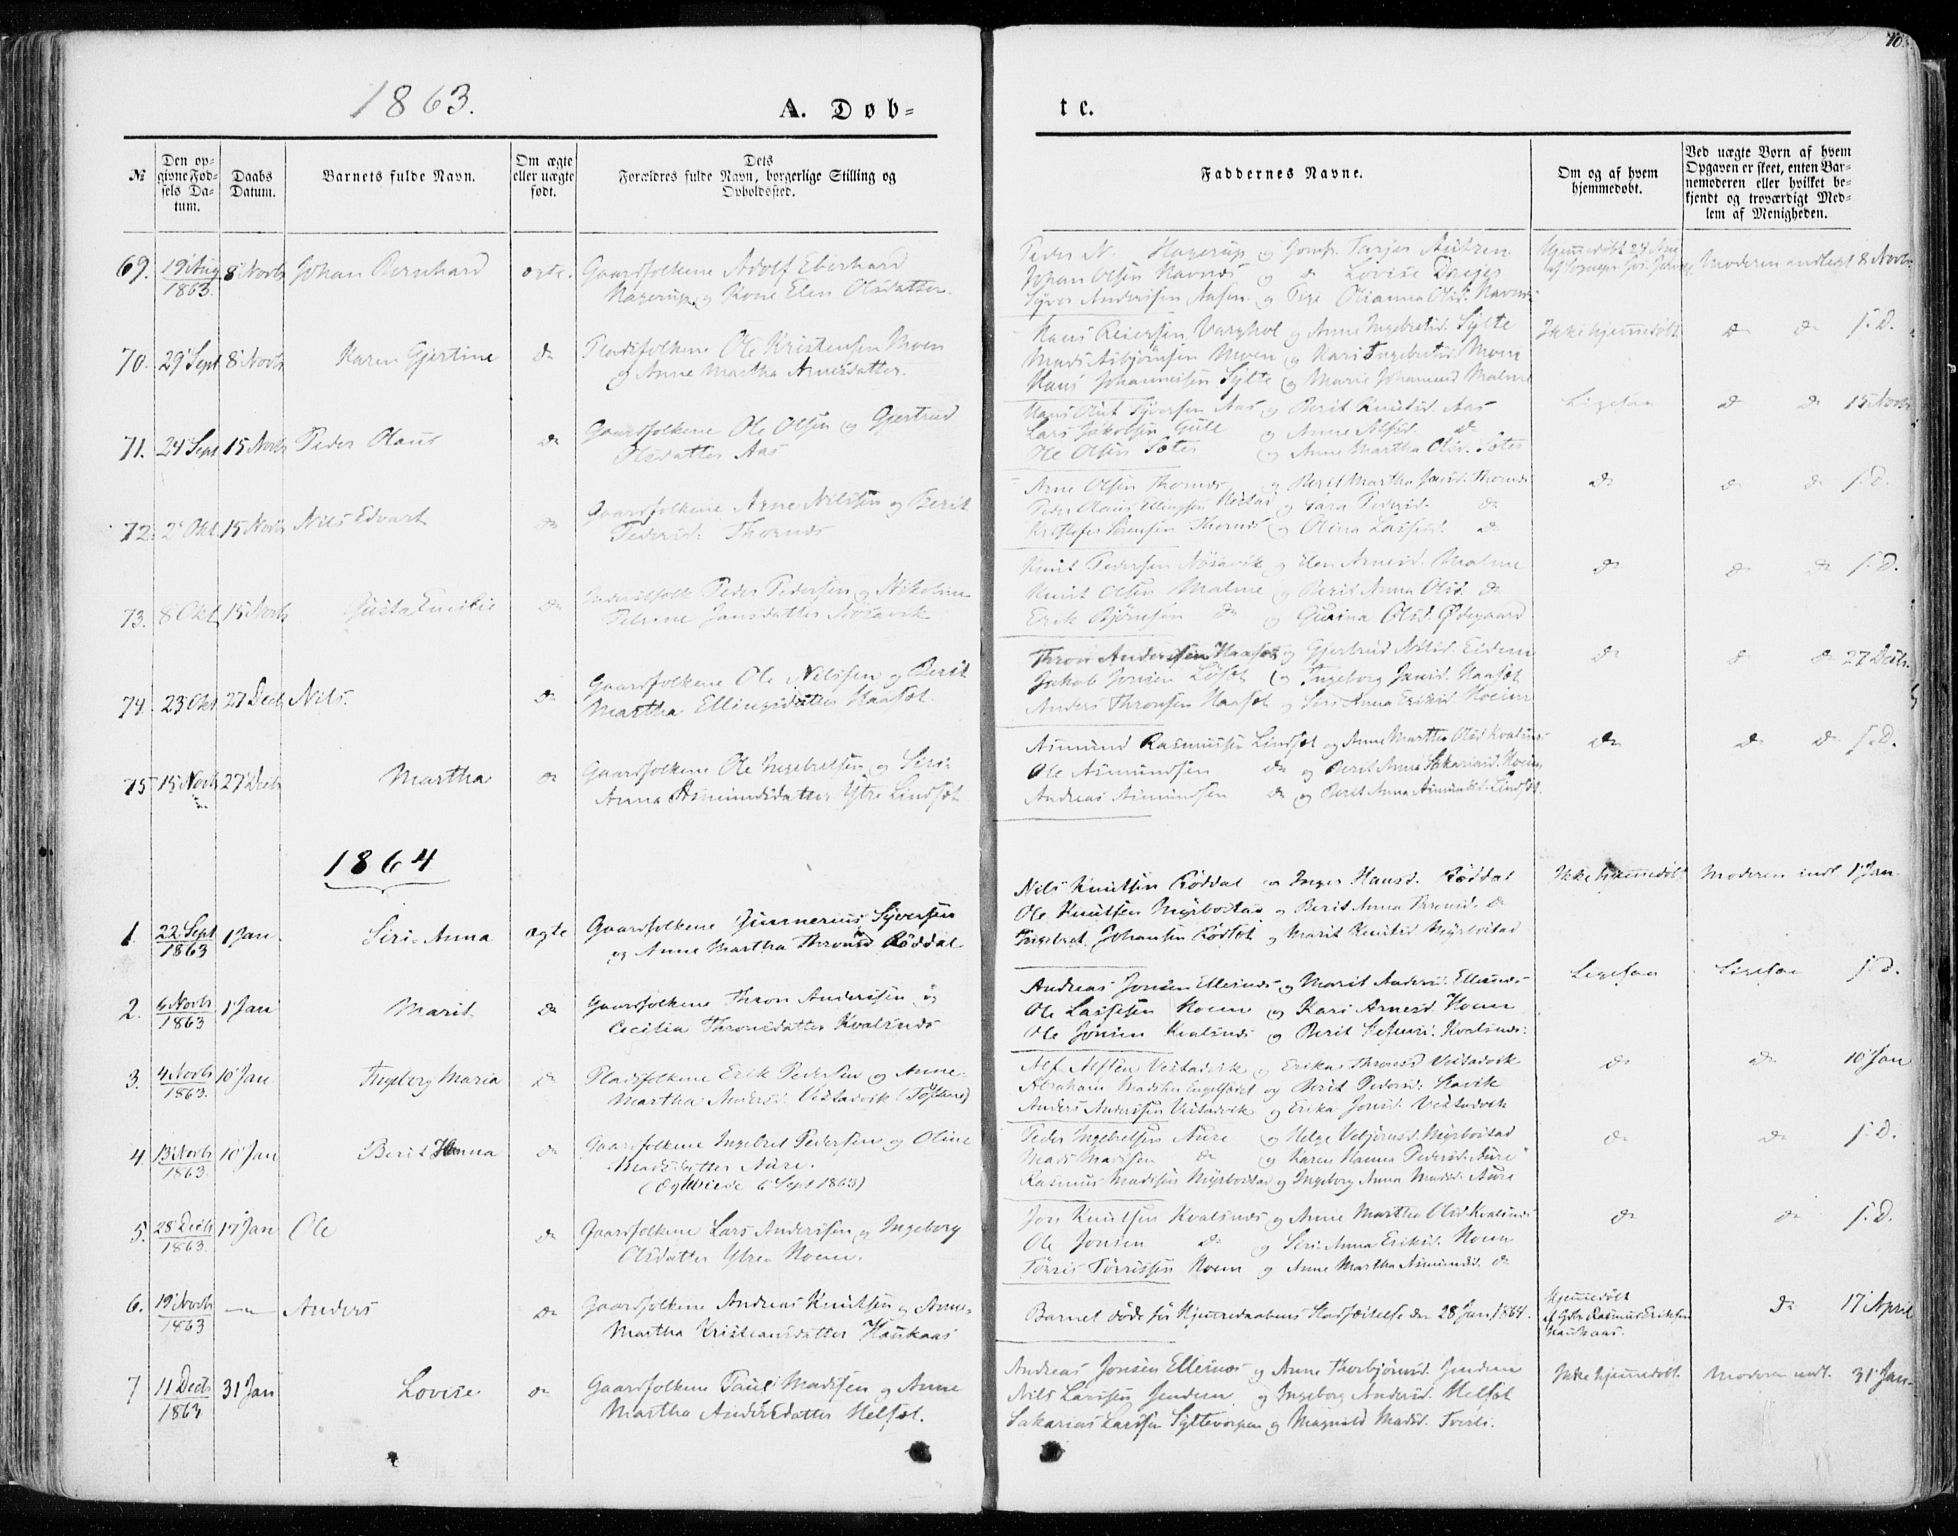 70.
1863.
A. Døb-
te.
№
Den op-
givne Fød-
sels Da-
tum.
Daabs
Datum.
Barnets fulde Navn.
Om ægte
eller uægte
født.
Dets
Forældres fulde Navn, borgerlige Stilling og
Opholdssted.
Faddernes Navne.
Om og af hvem
hjemmedøbt.
Ved uægte Børn af hvem
Opgaven er skeet, enten Bar-
nemoderen eller hvilket be-
kjendt og troværdigt Med-
lem af Menigheden.
69. 19 Aug 1863. 8 Novb Johan Bernhard ægte. Gaardfolkene Adolf Eberhard
Hagerup og Kone Elen Olsdatter.
Peder N. Hagerup og Jomf.
Johan Olsen Havnes og do Lovise
Syver Andersen Aasen og Pige Olianna Olsd. Havnes
Moderen 8 Novb
70. 29 Sept 8 Novb Karen Gjertine do Pladsfolkene Ole Kristensen Moen
og Anne Martha Arnesdatter.
Hans Reiersen Varghol og Anne Ingebretsd. Sylte
Mads Asbjørnsen Moen og Kari Ingebretsd. Moen
Hans Johannesen Sylte og Marie Johannesd Malme
Ikke hjemmedøbt do do s. D.
71. 24 Sept 15 Novb Peder Olaus do Gaardfolkene Ole Olsen og Gjertrud
Olsdatter Aas
Hans Olaf Syversen Aas og Berit Knutsd. Aas
Lars Jakobsen Gule og Anne Alfsd. do
Ole Olsen Sæter og Anne Martha Olsd. Sæter
Ligesaa do do 15 Novb
72. 2 Okt 15 Novb Nils Edvart do Gaardfolkene Arne Nilssen og Berit
Pedersd. Thornes
Arne Olsen Thornes og Berit Martha Jansd. Thornes
Peder Olaus Ellingsen og Sara Pedersd. do
Kristofer Thornes og Olina Larsd. do
do do do s. D.
73. 8 Okt 15 Novb Gusta Emilie do Peder Pedersen og Nikoline
Petrine Jansdatter Nøsavik
Knut Pedersen Nøsavik og Elen Arnesd. Malme
Knut Olsen Malme og Berit Anna Olsd. do
Erik Bjørnsen do og Gurina Olsd. Ødegaard
do do do s. D.
74. 23 Okt 27 Decb Nils. do Gaardfolkene Ole Nilssen og Berit
Martha Ellingsdatter Haasæt.
Thron Andersen Haasæt og Gjertrud Nilsd. Eidem
Jakob Jonsen Løset og Ingeborg Jansd. Haasæt
Anders Thronsen Haasæt og Siri Anna Eriksd. Hoem
do do do 27 Decb.
75 15 Novb 27 Decb Martha do Gaardfolkene Ole Ingebretsen og Siri
Anna Asmundsdatter Ytre Lindsæt
Asmund Rasmussen Lindsæt og Anne Martha Olsd Kvalsnes
Ole Asmundsen do og Berit Anne Sakariasd. Hoem
Andreas Asmundsen do og Berit Anna Asmundsd. Lindsæt.
do do do s. D.
1864
1. 22 Sept 1863 1 Jan. Siri Anna ægte Gaardfolkene Gunnerius Syversen
og Anne Martha Thronsd Røddal
Nils Knutsen Røddal og Inger Hansd. Røddal
Ole Knutsen Myrbostad og Berit Anna do
Ingebret Johansen Rødsæt og Marit Knutsd Myrbostad
Ikke hjemmedøbt. Moderen indt 1 Jan.
2. 6 Novb 1863 1 Jan Marit do Gaardfolkene Thron Andersen og
Cecilia Thronsdatter Kvalsnes
Andreas Jonsen Ellernes og Marit Andersd. Ellernes
Ole Larssen Hoem og Kari Arnesd. Hoem
Ole Jonsen Kvalsnes og Berit Kvalsnes.
Ligesaa Ligesaa s. D.
3. 4 Novb 1863. 10 Jan Ingeborg Maria do Pladsfolkene Erik Pedersen og Anne
Martha Andersd. Vestadvik
Alf Alfsen Vestadvik og Erika Thronsd Vestadvik
Abraham Madssen og Berit Pedersd.
Anders Anderssen Vestadvik og Erika Jonsd. Vestadvik
do do 10 Jan
4. 13 Novb 1863. 10 Jan Berit Hanna do Gaardfolkene Ingebret Pedersen og Oline
Madsdatter Aure.
(Ægteviede 6 Sept 1863)
Peder Ingebretsen Aure og Helge Myrbostad
Mads Madssen do og Karen Hanna Pedersd. Aure
Rasmus Madssen Myrbostad og Ingeborg Anna Madsd. Aure
do do s. D.
5. 28 Decb 1863. 17 Jan Ole do Gaardfolkene Lars Anderssen og Ingeborg
Olsdatter Ytre Hoem.
Jon Knutsen Kvalsnes og Anne Martha Olsd Kvalsnes
Ole Jonsen do og Siri Anna Eriksd. Hoem
Tørris Tørrissen Hoem og Anne Martha Asmundsd. do
do do s. D.
6. 19 Novb 1863 Anders do Gaardfolkene Andreas Knutsen og Anne
Martha Kristiansdatter Haukaas
Barnet døde før Hjemmedaabens Stadfæstelse den 28 Jan. 1864.
Hjemmedøbt
af Rasmus Eriksen
Haukaas.
do 17 April
7 11 Decb 1863 31 Jan Lovise do Gaardfolkene Paul Madssen og Anne
Martha Andersdatter Helsæt.
Andreas Jonsen Ellernes og Anne Thorbjørnsd. Jendem
Nils Larssen Jendem og Ingeborg Andersd. Helsæt
Sakarias Larssen og Magnild Madsd.
Ikke hjemmedøbt. Moderen indt. 31 Jan.